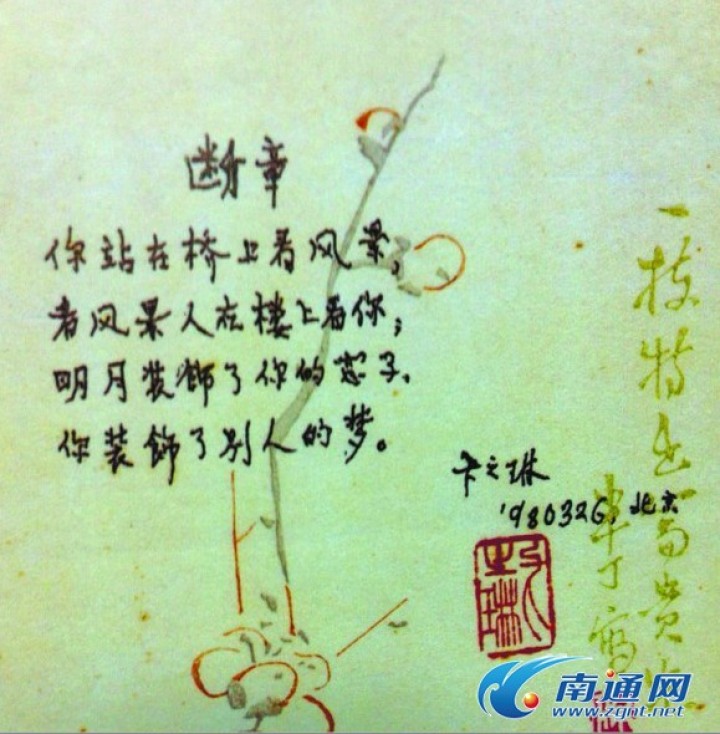 断章
你站在桥上看风景，
看风景人在楼上看你；
明月装饰了你的窗子、
你装饰了别人的梦。
卞之琳
1980326，北京
卞之琳
一枝特出富贵
南通网
www.zgnt.net